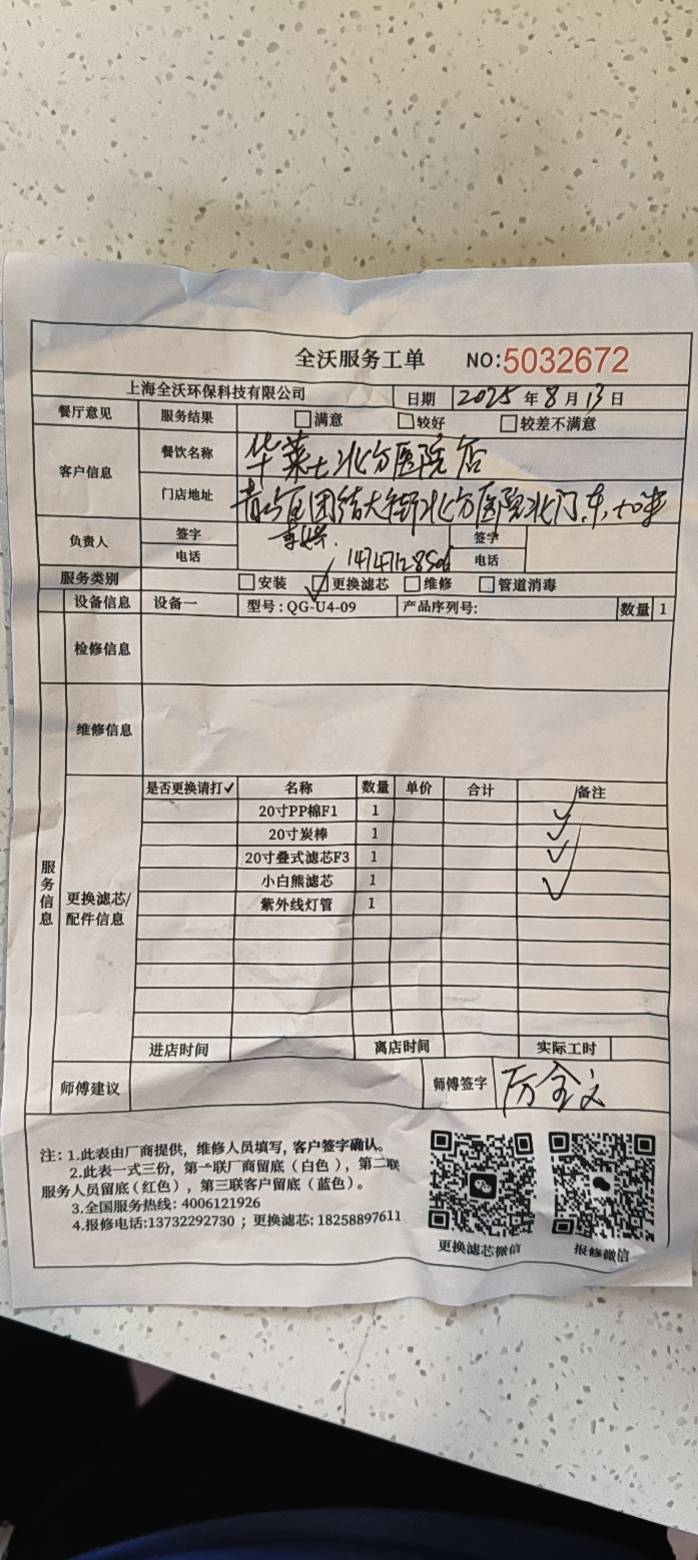 全沃服务工单 NO:5032672
上海全沃环保科技有限公司 日期 2025年8月13日
餐厅意见 服务结果 满意 较好 较差不满意
客户信息 餐饮名称 华莱士北方医院店
门店地址 青山区团结大街北方医院北门东十米
负责人 签字 签字
电话 14747128506 电话
服务类别 安装 更换滤芯 维修 管道消毒
设备信息 设备一 型号:QG-U4-09 产品序列号: 数量 1
检修信息
维修信息
服务信息
更换滤芯/配件信息
是否更换请打✓ 名称 数量 单价 合计 备注
20寸PP棉F1 1 ✓
20寸炭棒 1 ✓
20寸叠式滤芯F3 1 ✓
小白熊滤芯 1 ✓
紫外线灯管 1
进店时间 离店时间 实际工时
师傅建议 师傅签字 厉金文
注: 1.此表由厂商提供, 维修人员填写, 客户签字确认。
2.此表一式三份, 第一联厂商留底(白色), 第二联
服务人员留底(红色), 第三联客户留底(蓝色)。
3.全国服务热线: 4006121926
4.报修电话:13732292730 ; 更换滤芯: 18258897611
更换滤芯微信 报修微信